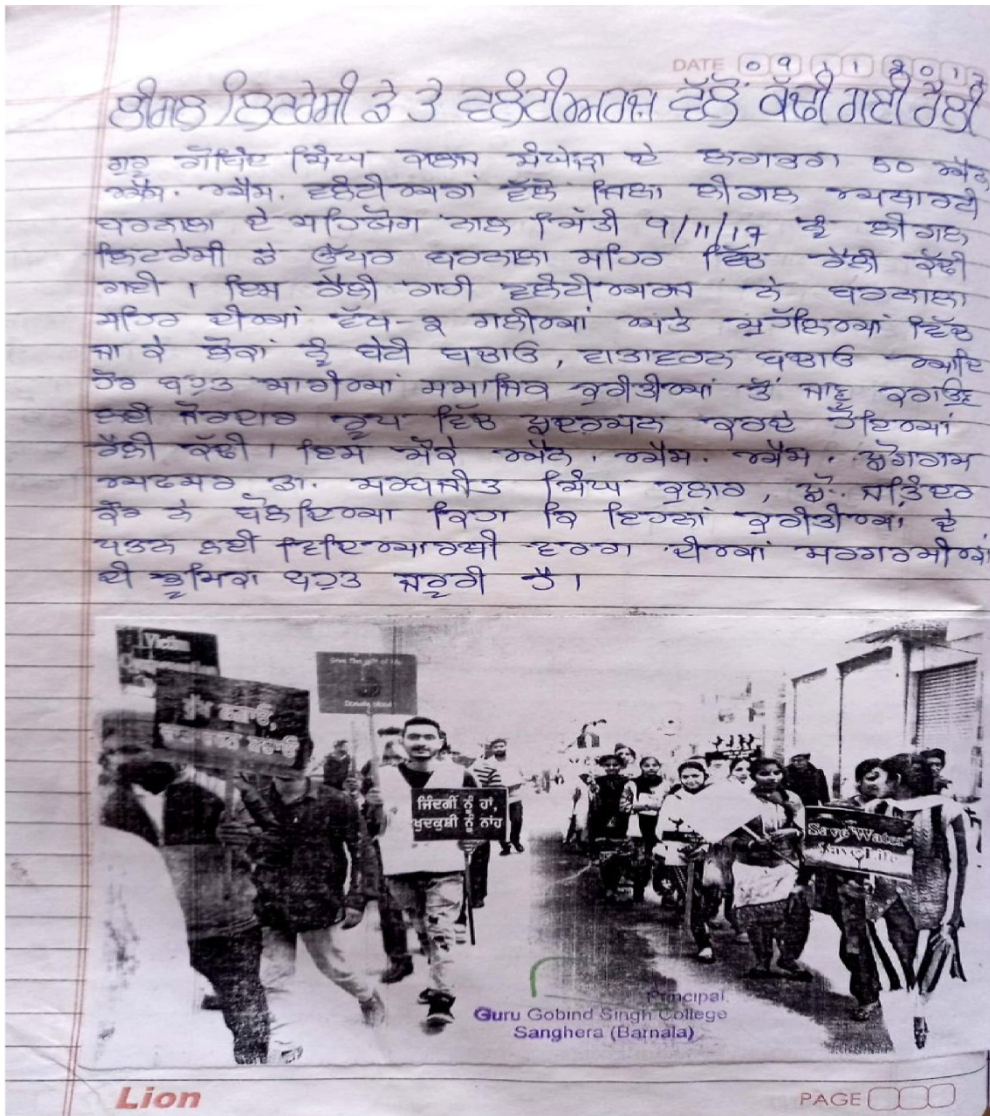 DATE 09 11 2017
ਲੀਗਲ ਲਿਟਰੇਸੀ ਡੇ ਤੇ ਵਲੰਟੀਅਰਜ਼ ਵੱਲੋਂ ਕੱਢੀ ਗਈ ਰੈਲੀ
ਗੁਰੂ ਗੋਬਿੰਦ ਸਿੰਘ ਕਾਲਜ ਸੰਘੇੜਾ ਦੇ ਲਗਭਗ 50 ਐਨ.
ਐਸ. ਐਸ. ਵਲੰਟੀਅਰਾਂ ਵੱਲੋਂ ਜਿਲਾ ਲੀਗਲ ਅਥਾਰਟੀ
ਬਰਨਾਲਾ ਦੇ ਸਹਿਯੋਗ ਨਾਲ ਮਿੱਤੀ 9/11/17 ਨੂੰ ਲੀਗਲ
ਲਿਟਰੇਸੀ ਡੇ ਉੱਪਰ ਬਰਨਾਲਾ ਸ਼ਹਿਰ ਵਿੱਚ ਰੈਲੀ ਕੱਢੀ
ਗਈ । ਇਸ ਰੈਲੀ ਰਾਹੀ ਵਲੰਟੀਅਰਜ ਨੇ ਬਰਨਾਲਾ
ਸ਼ਹਿਰ ਦੀਆਂ ਵੱਖ-੨ ਗਲੀਆਂ ਅਤੇ ਮੁਹੱਲਿਆਂ ਵਿੱਚ
ਜਾ ਕੇ ਲੋਕਾਂ ਨੂੰ ਬੇਟੀ ਬਚਾਓ, ਵਾਤਾਵਰਨ ਬਚਾਓ ਆਦਿ
ਹੋਰ ਬਹੁਤ ਸਾਰੀਆਂ ਸਮਾਜਿਕ ਕੁਰੀਤੀਆਂ ਤੋਂ ਜਾਣੂ ਕਰਾਉਣ
ਲਈ ਜੋਰਦਾਰ ਰੂਪ ਵਿੱਚ ਪ੍ਰਦਰਸ਼ਨ ਕਰਦੇ ਹੋਇਆਂ
ਰੈਲੀ ਕੱਢੀ । ਇਸ ਮੌਕੇ ਐਨ. ਐਸ. ਐਸ. ਪ੍ਰੋਗਰਾਮ
ਅਫਸਰ ਡਾ. ਸਰਬਜੀਤ ਸਿੰਘ ਕੁਲਾਰ, ਪ੍ਰੋ. ਜਤਿੰਦਰ
ਕੌਰ ਨੇ ਬੋਲਦਿਆ ਕਿਹਾ ਕਿ ਇਹਨਾਂ ਕੁਰੀਤੀਆਂ ਦੇ
ਪਤਨ ਲਈ ਵਿਦਿਆਰਥੀ ਵਰਗ ਦੀਆਂ ਸਰਗਰਮੀਆਂ
ਦੀ ਭੂਮਿਕਾ ਬਹੁਤ ਜਰੂਰੀ ਹੈ ।
Victim
Save The gift of life
Donate blood
ਰੁੱਖ ਲਗਾਓ,
ਜਿੰਦਗੀ ਨੂੰ ਹਾਂ,
ਖੁਦਕੁਸ਼ੀ ਨੂੰ ਨਾਂਹ
Save Water
Save Life
Principal
Guru Gobind Singh College
Sanghera (Barnala)
Lion
PAGE